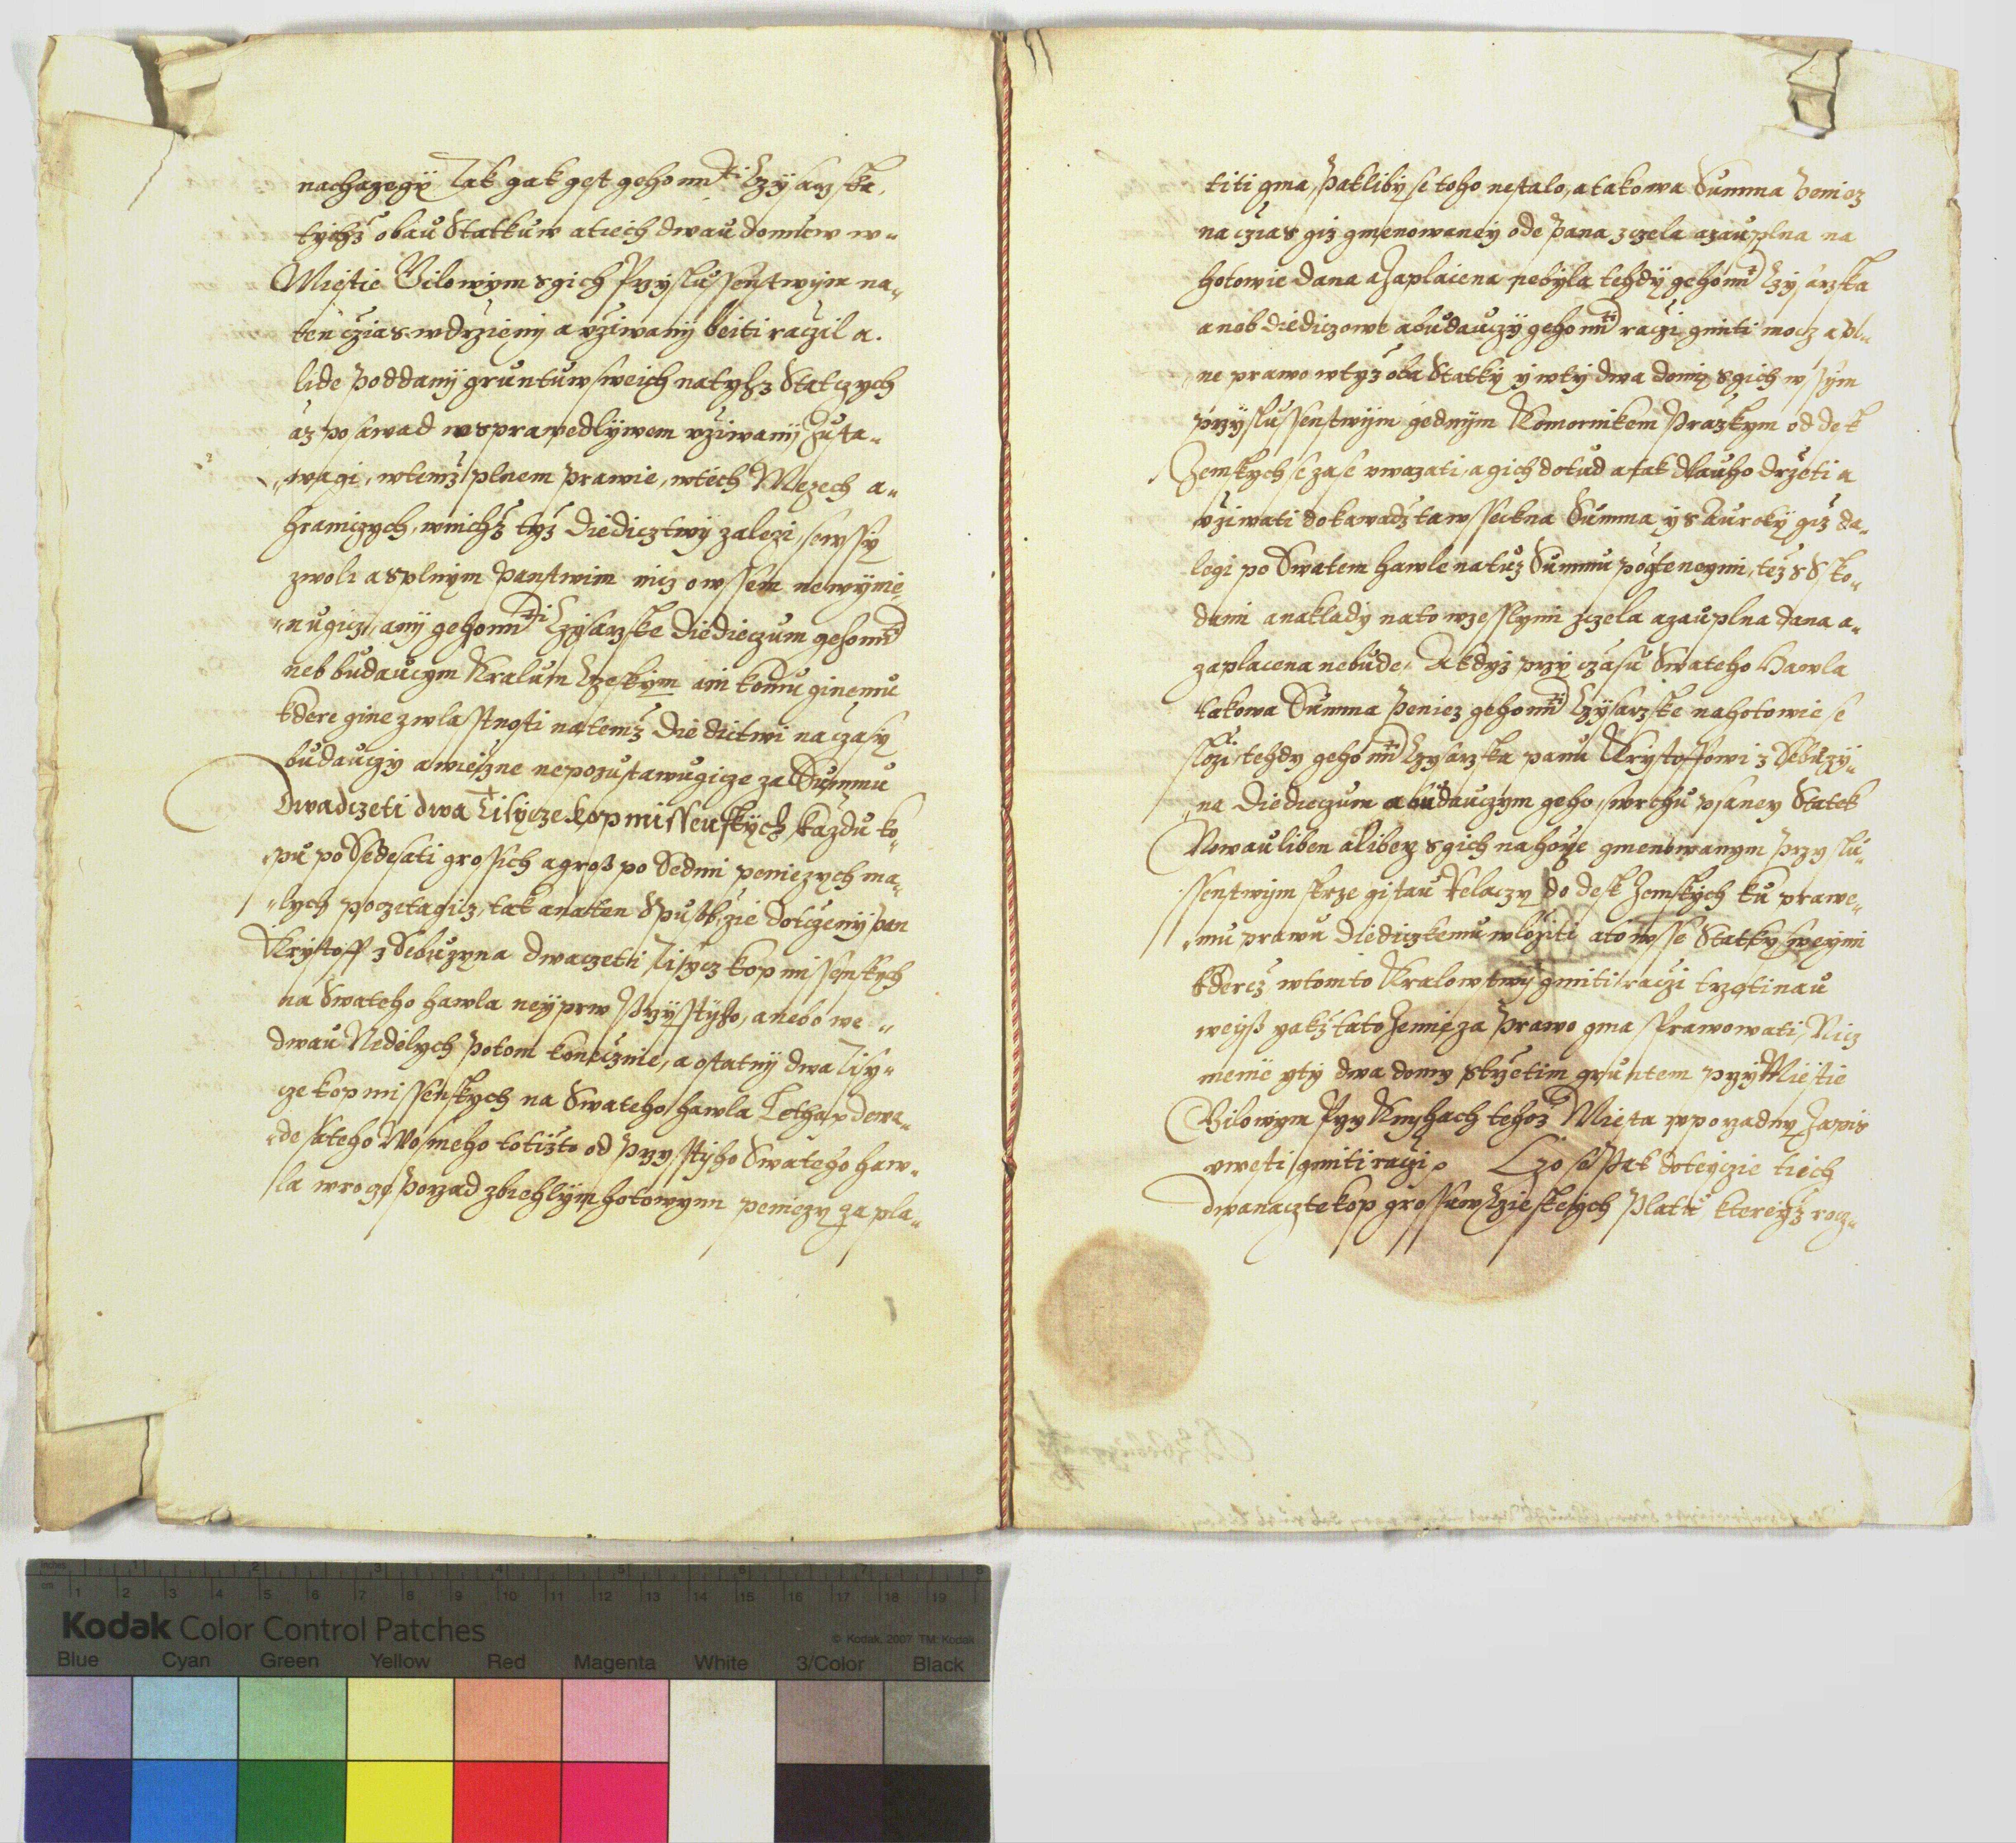 nachazegij Tak gak gest geho mti Czysarzska
tychž obau Statkuw a tiech dwau domuow w
Miestie Bilowym s gich Przyslussenstwym na
ten czias w drzieny a vziwany beiti raczil a
lide poddany gruntuw sweich na tychž Statczych
až posawad w sprawedlywem vžiwany zusta
wagi, w temž plnem prawie, w tiech Mezech a
hraniczych, w nichž tyž Diedicztwy zaležie, se wssy
zwoli a s plnym panstwim nicz owssem newymie
nugicz, any geho mti Czysarzske Diediczum geho mti
neb buduczym Kralum Czeskym ani komu ginemu
kdere gine zwlasstnosti na temž Diedictwi na czasy
buduczy a wieczne nepozustawugicze za Summu
Dwadczeti dwa Tisycze kop missenskych každu ko
pu po Ssedesati grossich a gross po Sedmi penieczych ma
lych pocztagicz, tak a na ten Spusob, zie dotczeny pan
Krystoff z Sebuzyna dwaczeti Tisycz kop missenskych
na Swateho Hawla neyprw Przysstyho, anebo we
dwau Nedelych potom konecznie, a ostatny dwa Tisy
cze kop missenskych na Swateho Hawla Letha p dewa
desateho Wosmeho totižto od przysstyho Swateho Haw
la w rocze porzad zbiehlym hotowymi peniezy zapla
titi gma, Pakliby se toho nestalo, a takowa Summa Peniez
na czias giž gmenowaney ode Pana zczela a zauplna na
hotowie dana a zaplacena nebyla tehdy geho mt Czysarzska
aneb Diediczowe a buduczy geho mti raczi gmiti mocz a pl
ne prawo w tyž oba Statky y w ty dwa domy s gich wssym
przyslussenstwym gednym Komornikem Pražkym od desk
Zemskych se zase vwazati, a gich dotud a tak dlauho držeti a
vžiwati dokawadž ta wsseckna Summa y s Auroky giž da
legi po Swatem Hawle na tuž Summu pogitenymi, tež s Sko
dami a naklady na to wzesslymi zczela a zauplna dana a
zaplacena nebude. A když przy czasu Swateho Hawla
takowa Summa Peniez geho mti Czysarzske na hotowie se
složi, tehdy geho mt Czysarzska panu Krystoffowi z Sebuzy
na Diediczum a buduczym geho, swrchu psaney Statek
Nowau Liben a Libez s gich nahorze gmenowanym Przyslu
ssenstwym skrze gistau Relaczy do desk Zemskych ku prawe
mu prawu Diedicztemu wložiti a to wsse Statky sweymi
kdercž w tomto Kralowstwy gmiti raczi trzetinau
weyss yakž tato Zemie za Prawo gma sprawowati, Nicz
menie y ty dwa domy s tyietim gruntem przy Miestie
Bilowym Przy Knyhach tehož Miesta w porzadny Zapis
vwesti gmiti raczi. Czo se Pak dotycze tiech
dwanaczte kop grossuw Czieskeych Platu ktereyž rocz